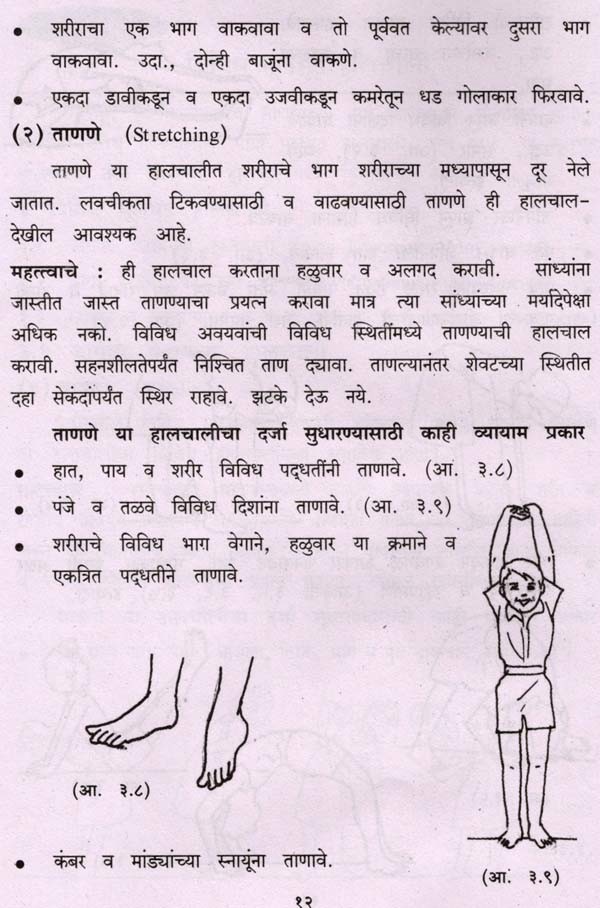 • शरीराचा एक भाग वाकवावा व तो पूर्ववत केल्यावर दुसरा भाग
वाकवावा. उदा., दोन्ही बाजूंना वाकणे.
• एकदा डावीकडून व एकदा उजवीकडून कमरेतून धड गोलाकार फिरवावे.
(२) ताणणे (Stretching)
ताणणे या हालचालीत शरीराचे भाग शरीराच्या मध्यापासून दूर नेले
जातात. लवचीकता टिकवण्यासाठी व वाढवण्यासाठी ताणणे ही हालचाल-
देखील आवश्यक आहे.
महत्त्वाचे : ही हालचाल करताना हळुवार व अलगद करावी. सांध्यांना
जास्तीत जास्त ताणण्याचा प्रयत्न करावा मात्र त्या सांध्याच्या मर्यादेपेक्षा
अधिक नको. विविध अवयवांची विविध स्थितींमध्ये ताणण्याची हालचाल
करावी. सहनशीलतेपर्यंत निश्चित ताण द्यावा. ताणल्यानंतर शेवटच्या स्थितीत
दहा सेकंदांपर्यंत स्थिर राहावे. झटके देऊ नये.
ताणणे या हालचालीचा दर्जा सुधारण्यासाठी काही व्यायाम प्रकार
• हात, पाय व शरीर विविध पद्धतींनी ताणावे. (आ. ३.८)
• पंजे व तळवे विविध दिशांना ताणावे. (आ. ३.९)
• शरीराचे विविध भाग वेगाने, हळुवार या क्रमाने व
एकत्रित पद्धतीने ताणावे.
(आ. ३.८)
• कंबर व मांड्यांच्या स्नायूंना ताणावे.
(आ. ३.९)
१२